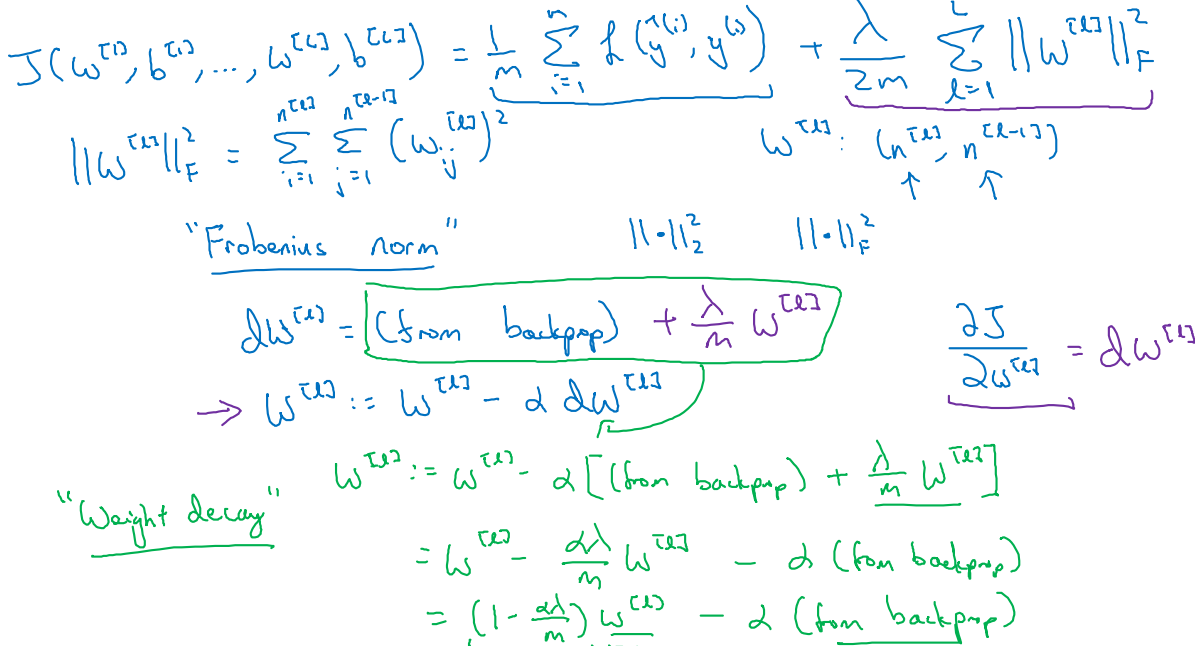 J(ω^[1], b^[1], ..., ω^[L], b^[L]) = 1/m Σ_{i=1}^{n} L(ŷ^(i), y^(i)) + λ/2m Σ_{l=1}^{L} ||ω^[l]||_F^2
||ω^[l]||_F^2 = Σ_{i=1}^{n^[l]} Σ_{j=1}^{n^[l-1]} (ω_ij^[l])^2 ω^[l]: (n^[l], n^[l-1])
↑ ↑
"Frobenius norm" ||·||_2^2 ||·||_F^2
dω^[l] = (from backprop) + λ/m ω^[l]
∂J/∂ω^[l] = dω^[l]
→ ω^[l] := ω^[l] - α dω^[l]
"Weight decay"
ω^[l] := ω^[l] - α[(from backprop) + λ/m ω^[l]]
= ω^[l] - αλ/m ω^[l] - α (from backprop)
= (1 - αλ/m) ω^[l] - α (from backprop)